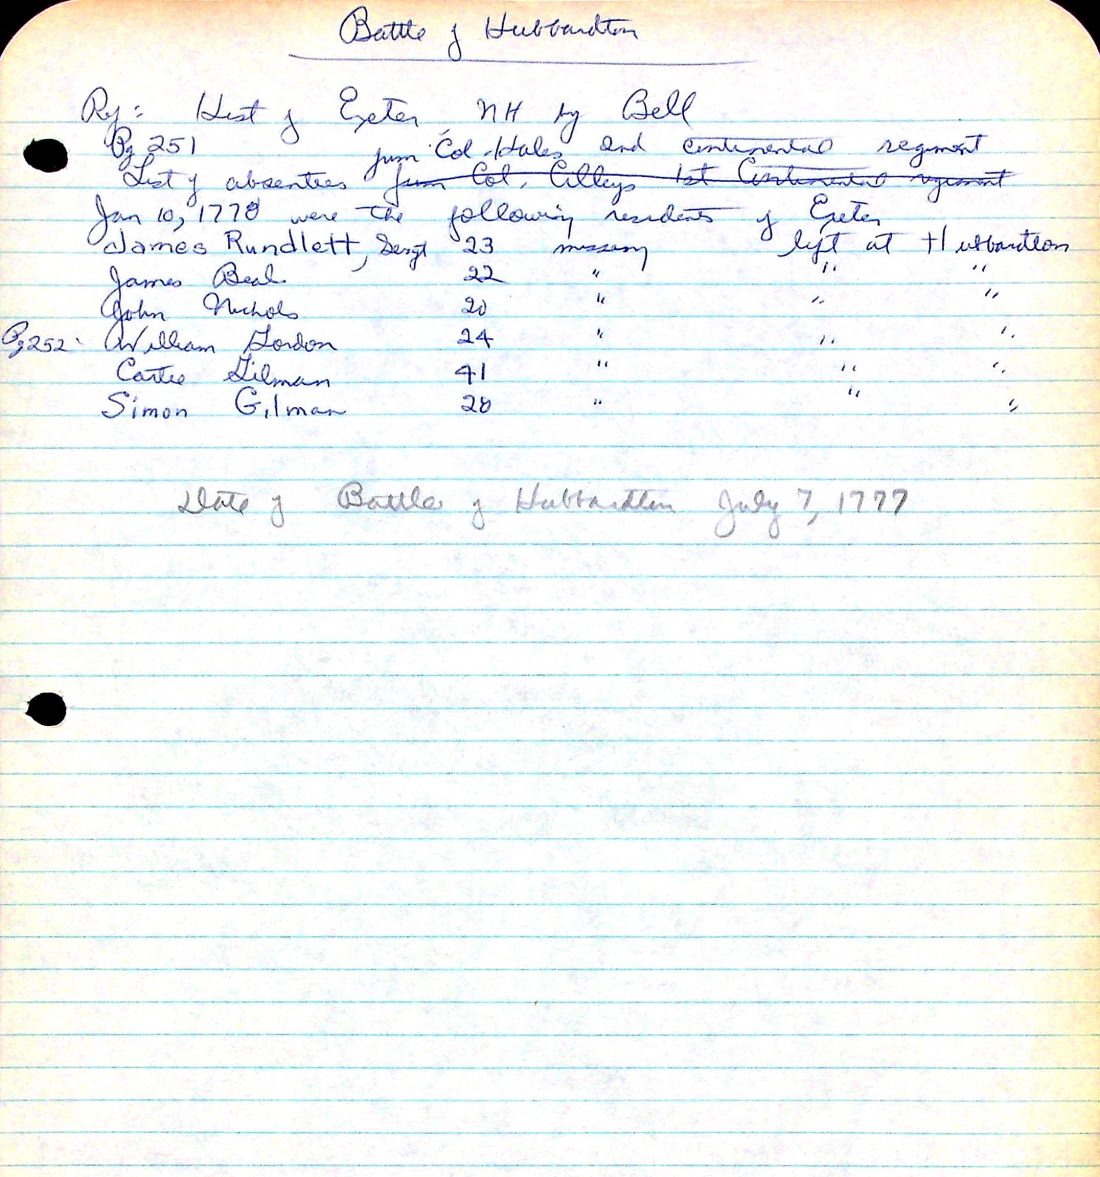 Battle of Hubbardton
Ref: Hist of Exeter NH by Bell
Pg 251 from Col Hales 2nd continental regiment
List of absentees from Col. Cilleys 1st Continental regiment
Jan 10, 1778 were the following residents of Exeter
James Rundlett, Sergt 23 missing left at Hubbardton
James Beal 22 " " "
John Nichols 20 " " "
Pg 252 William Gordon 24 " " "
Cartee Gilman 41 " " "
Simon Gilman 28 " " "
Date of Battle of Hubbardton July 7, 1777